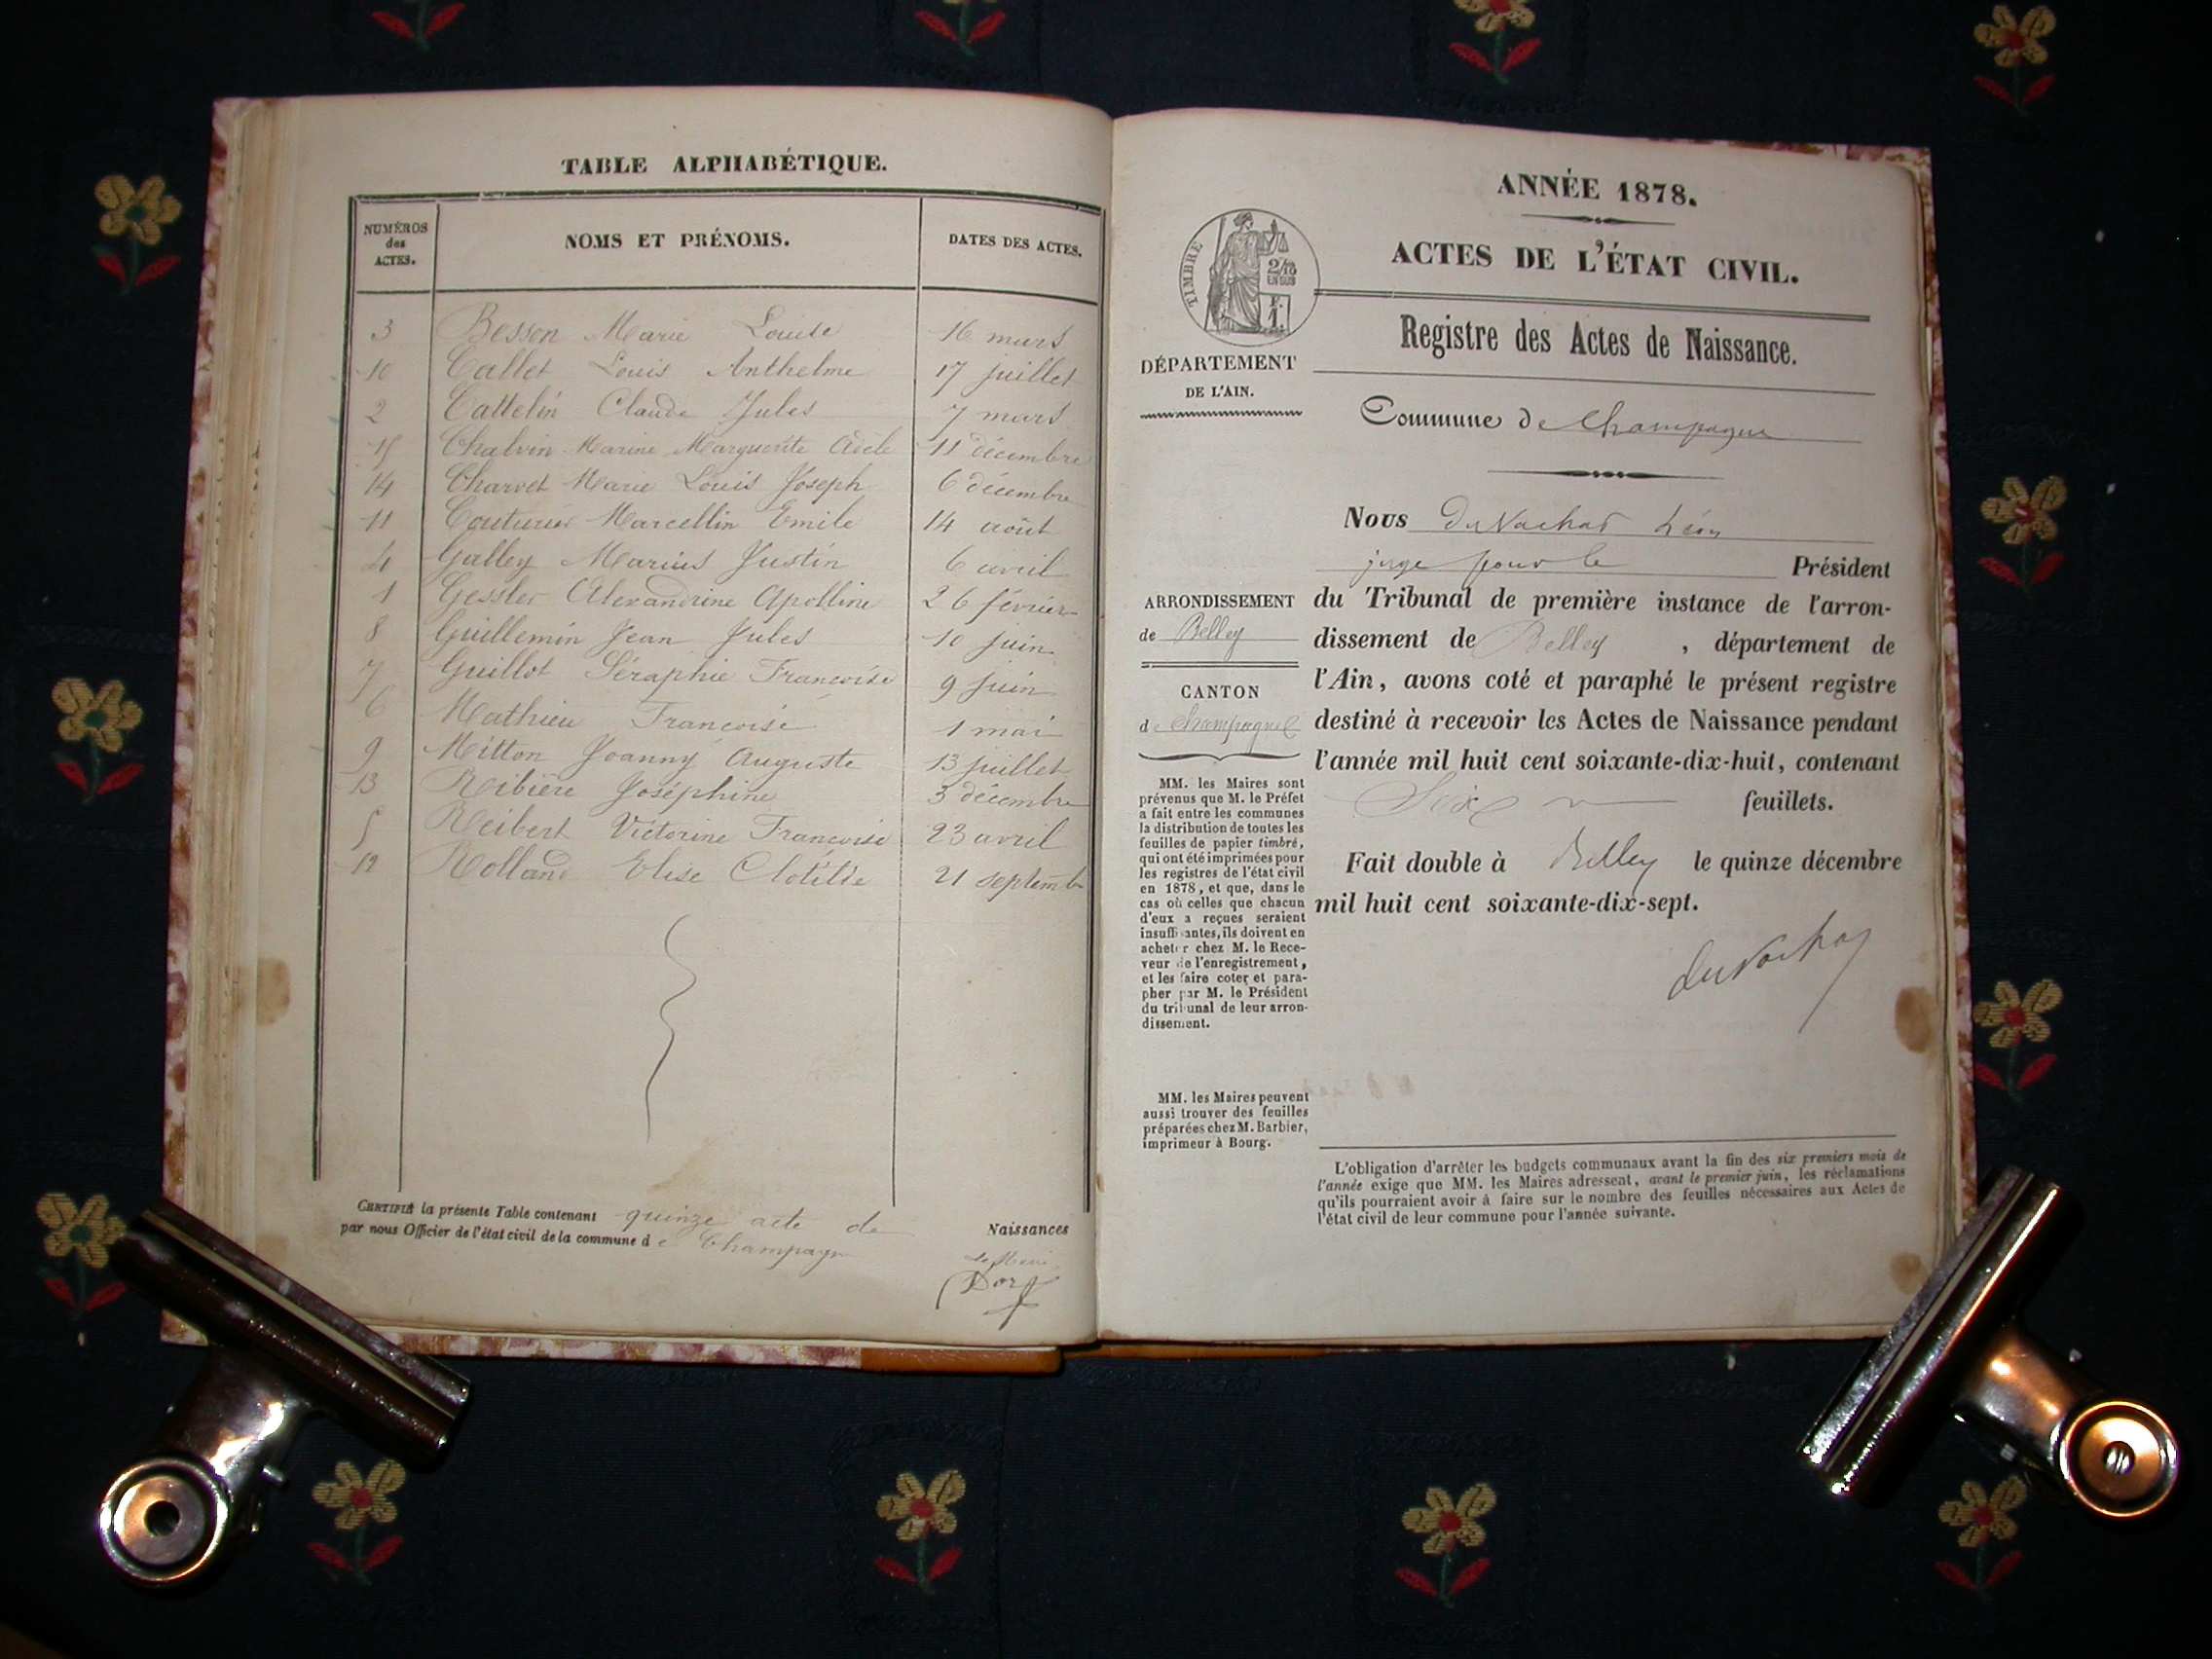 TABLE ALPHABÉTIQUE.
NUMÉROS des ACTES.
NOMS ET PRÉNOMS.
DATES DES ACTES.
3 Besson Marie Louise 16 mars
10 Callet Louis Anthelme 17 juillet
2 Cattelin Claude Jules 7 mars
15 Chalvin Marine Marguerite Adèle 11 décembre
14 Charvet Marie Louis Joseph 6 décembre
11 Couturier Marcellin Emile 14 août
4 Galley Marius Justin 6 avril
1 Gessler Alexandrine Apolline 26 février
8 Guillemin Jean Jules 10 juin
7 Guillot Séraphie Françoise 9 juin
6 Mathieu Françoise 1 mai
9 Mitton Joanny Auguste 13 juillet
13 Reibière Joséphine 3 décembre
5 Reibert Victorine Françoise 23 avril
12 Rolland Elise Clotilde 21 septemb
CERTIFIÉ la présente Table contenant quinze acte de Naissances
par nous Officier de l'état civil de la commune de Champagn
Le Maire
ANNÉE 1878.
ACTES DE L'ÉTAT CIVIL.
TIMBRE
2/10
EN SUS
DÉPARTEMENT
DE L'AIN.
Registre des Actes de Naissance.
Commune de Champagne
Nous Du Vachat Léon
juge pour le Président
du Tribunal de première instance de l'arron-
dissement de Belley , département de
l'Ain, avons coté et paraphé le présent registre
destiné à recevoir les Actes de Naissance pendant
l'année mil huit cent soixante-dix-huit, contenant
Six feuillets.
Fait double à Belley le quinze décembre
mil huit cent soixante-dix-sept.
du Vachat
ARRONDISSEMENT
de Belley
CANTON
de Champagne
MM. les Maires sont
prévenus que M. le Préfet
a fait entre les communes
la distribution de toutes les
feuilles de papier timbré,
qui ont été imprimées pour
les registres de l'état civil
en 1878, et que, dans le
cas où celles que chacun
d'eux a reçues seraient
insuffisantes, ils doivent en
acheter chez M. le Rece-
veur de l'enregistrement,
et les faire coter et para-
pher par M. le Président
du tribunal de leur arron-
dissement.
MM. les Maires peuvent
aussi trouver des feuilles
préparées chez M. Barbier,
imprimeur à Bourg.
L'obligation d'arrêter les budgets communaux avant la fin des six premiers mois de
l'année exige que MM. les Maires adressent, avant le premier juin, les réclamations
qu'ils pourraient avoir à faire sur le nombre des feuilles nécessaires aux Actes de
l'état civil de leur commune pour l'année suivante.